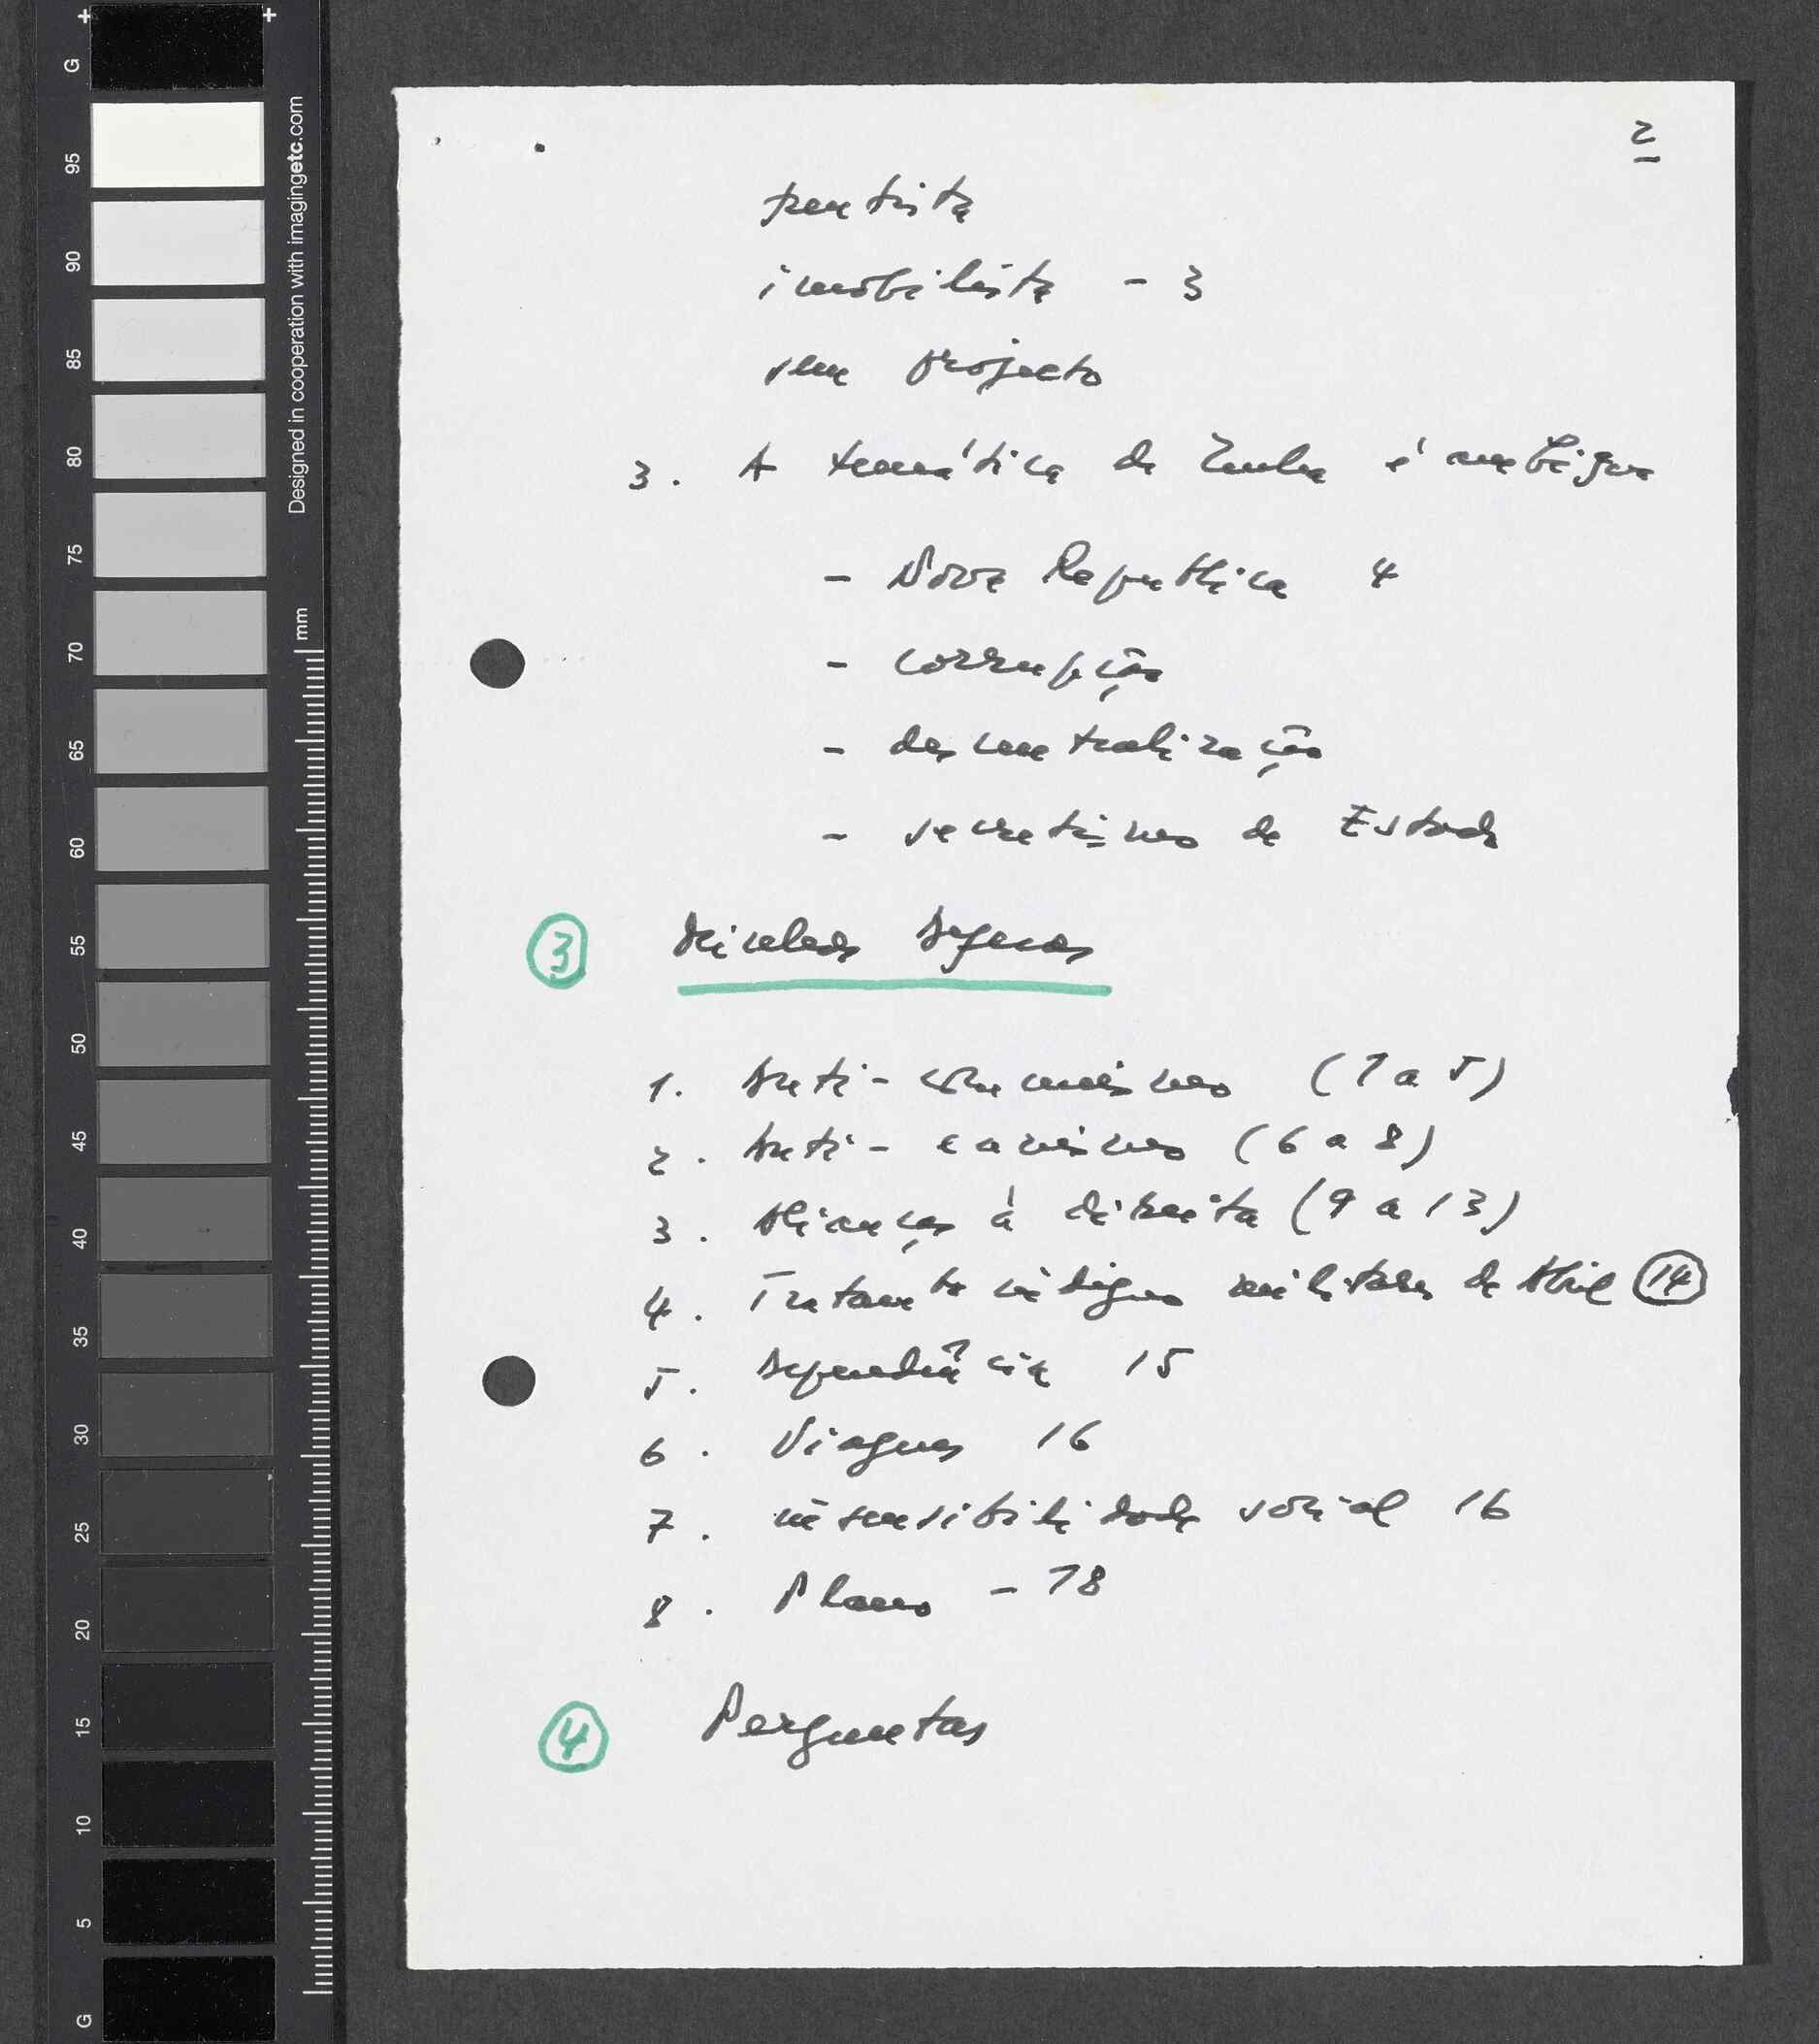 2
imobilista - 3
sem projecto
3. A temática de Zenha é ambígua
- Nova República 4
- corrupção
- descentralização
- secretismo de Estado
3
1. Anti-comunismo (1 a 5)
2. Anti-eanismo (6 a 8)
3. Alianças à direita (9 a 13)
4. Tratamto indigno militares de Abril 14
5. Dependência 15
6. Viagens 16
7. insensibilidade social 16
8. Plano - 18
4 Perguntas
Designed in cooperation with imagingetc.com
mm
G
95
90
85
80
75
70
65
60
55
50
45
40
35
30
25
20
15
10
5
G